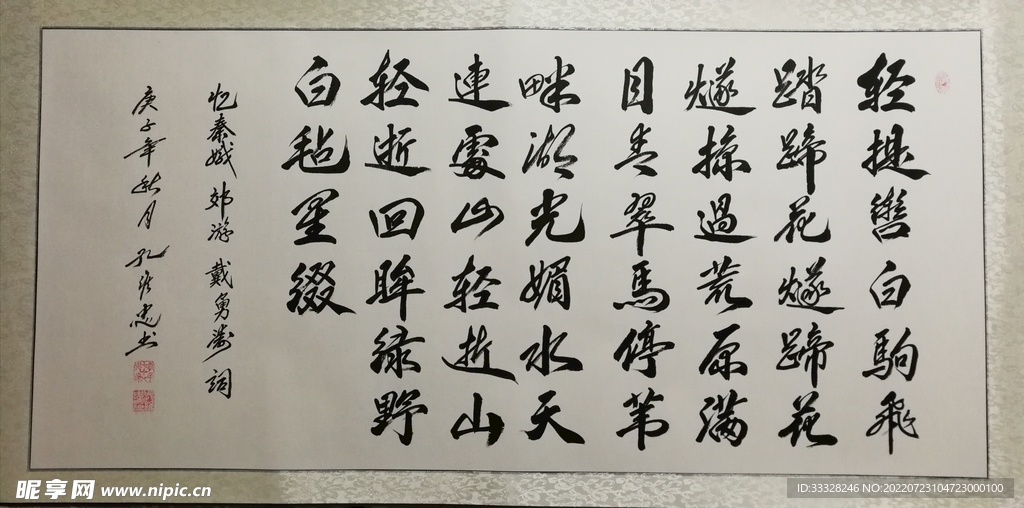 轻提辔白驹飛
踏蹄花燧蹄花
燧掠過荒原满
目青翠馬停苇
畔湖光媚水天
連處山轻逝山
轻逝回眸绿野
白毡星缀
忆秦娥 郊游 戴勇涛 詞
庚子年秋月 孔维忠书
昵享网 www.nipic.cn
ID:33328246 NO:20220723104723000100